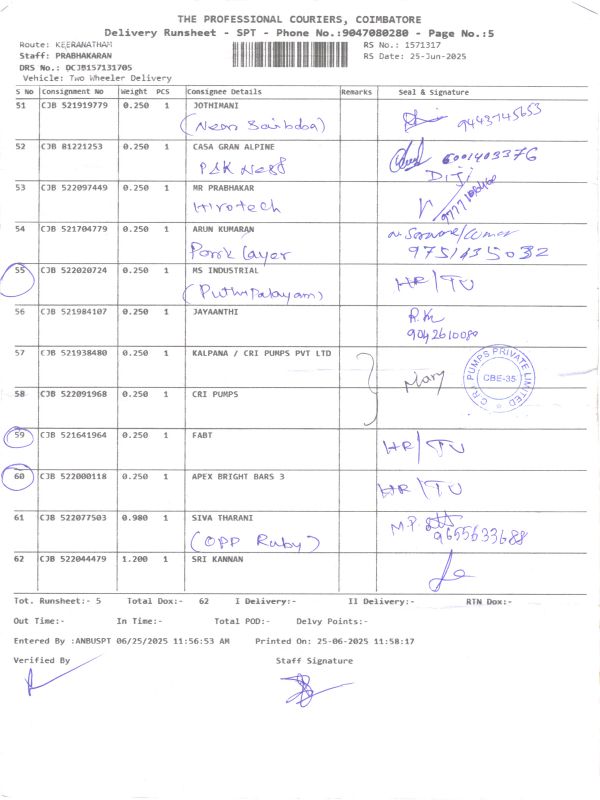 THE PROFESSIONAL COURIERS, COIMBATORE
Delivery Runsheet - SPT - Phone No.:9047080280 - Page No.:5
Route: KEERANATHAM RS No.: 1571317
Staff: PRABHAKARAN RS Date: 25-Jun-2025
DRS No.: DCJB157131705
Vehicle: Two Wheeler Delivery
S No Consignment No Weight PCS Consignee Details Remarks Seal & Signature
51 CJB 521919779 0.250 1 JOTHIMANI
(Near Saibaba) 9443745653
52 CJB 81221253 0.250 1 CASA GRAN ALPINE 6001403376
PSK Nest DIJI
53 CJB 522097449 0.250 1 MR PRABHAKAR
Hirotech
54 CJB 521704779 0.250 1 ARUN KUMARAN
Park Layer 9751435032
55 CJB 522020724 0.250 1 MS INDUSTRIAL HR/TU
(Puthupalayam)
56 CJB 521984107 0.250 1 JAYAANTHI R.K
9042610080
57 CJB 521938480 0.250 1 KALPANA / CRI PUMPS PVT LTD
Mary
C.R.I. PUMPS PRIVATE LIMITED
CBE-35
58 CJB 522091968 0.250 1 CRI PUMPS
59 CJB 521641964 0.250 1 FABT HR/TU
60 CJB 522000118 0.250 1 APEX BRIGHT BARS 3 HR/TU
61 CJB 522077503 0.980 1 SIVA THARANI M.P
(OPP Ruby) 9655633688
62 CJB 522044479 1.200 1 SRI KANNAN
Tot. Runsheet:- 5 Total Dox:- 62 I Delivery:- II Delivery:- RTN Dox:-
Out Time:- In Time:- Total POD:- Delvy Points:-
Entered By :ANBUSPT 06/25/2025 11:56:53 AM Printed On: 25-06-2025 11:58:17
Verified By Staff Signature